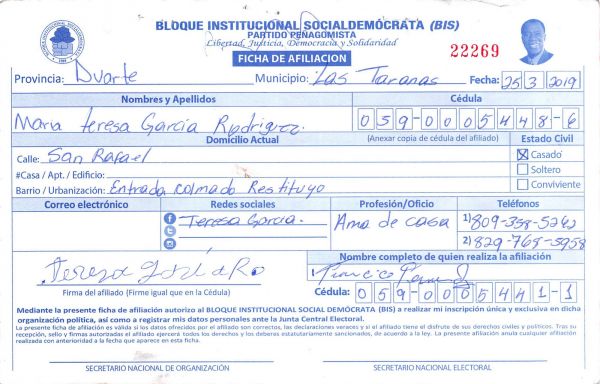 BLOQUE INSTITUCIONAL SOCIALDEMÓCRATA (BIS)
PARTIDO PEÑAGOMISTA
Libertad, Justicia, Democracia y Solidaridad
FICHA DE AFILIACION
22269
Provincia: Duarte Municipio: Las Taranas Fecha: 25 3 2019
Nombres y Apellidos Cédula
Maria Teresa Garcia Rodriguez 059-0005448-6
Domicilio Actual (Anexar copia de cédula del afiliado) Estado Civil
Calle: San Rafael Casado
#Casa / Apt. / Edificio: Soltero
Barrio / Urbanización: Entrada colmado Restituyo Conviviente
Correo electrónico Redes sociales Profesión/Oficio Teléfonos
Teresa Garcia. Ama de casa 1) 809-358-5242
2) 829-768-5958
Nombre completo de quien realiza la afiliación
Firma del afiliado (Firme igual que en la Cédula) Cédula: 059-0005441-1
Mediante la presente ficha de afiliación autorizo al BLOQUE INSTITUCIONAL SOCIAL DEMÓCRATA (BIS) a realizar mi inscripción única y exclusiva en dicha
organización política, así como a registrar mis datos personales ante la Junta Central Electoral.
La presente ficha de afiliación es válida si los datos ofrecidos por el afiliado son correctos, las declaraciones veraces y si el afiliado tiene el disfrute de sus derechos civiles y políticos. Tras su
recepción, sello y firmas autorizadas el afiliado ejercerá todos los derechos y los deberes estatutariamente sancionados, de acuerdo a la ley. La presente afiliación anula cualquier afiliación
realizada con anterioridad a la fecha que aparece en esta ficha.
SECRETARIO NACIONAL DE ORGANIZACIÓN SECRETARIO NACIONAL ELECTORAL